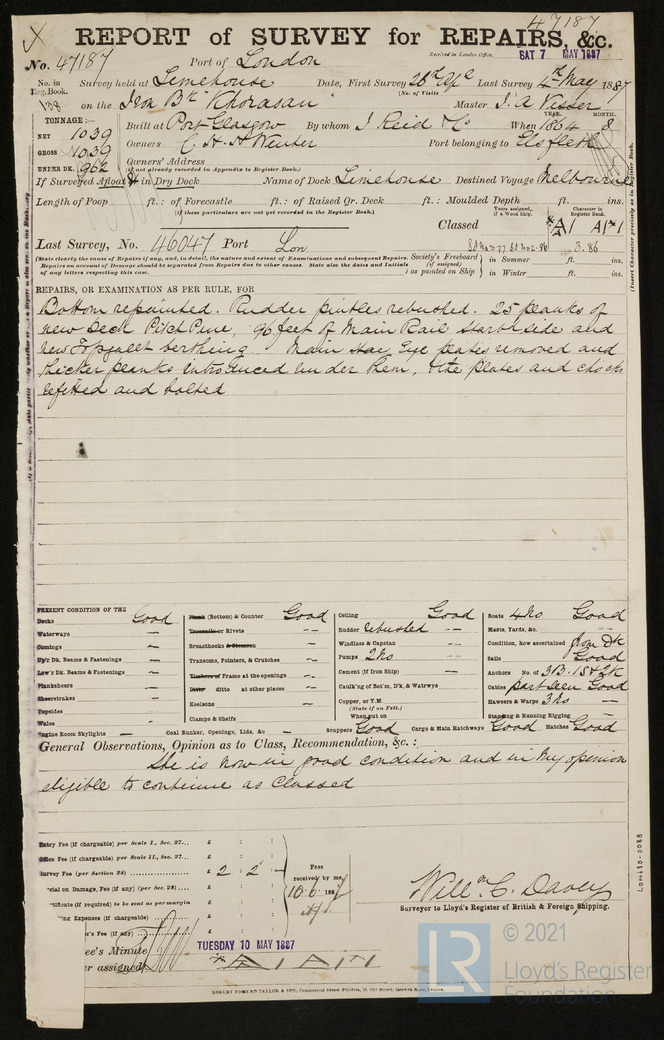 47187
REPORT of SURVEY for REPAIRS, &c.
No. 47187 Port of London Received in London Office, SAT 7 MAY 1887
No. in Reg. Book. Survey held at Limehouse Date, First Survey 26th Ap'l Last Survey 4th May 1887
138 on the Iron Bk "Khorasan" (No. of Visits ) Master J. A Visser
TONNAGE:— YEAR. MONTH.
NET 1039 Built at Port-Glasgow By whom J Reid & Co When 1864 8
GROSS 1039 Owners C. H. H Port belonging to Elsfleth
UNDER DK. 962 Owners' Address
(if not already recorded in Appendix to Register Book.)
If Surveyed Afloat & in Dry Dock Name of Dock Limehouse Destined Voyage Melbourne
Length of Poop ft.: of Forecastle ft.: of Raised Qr. Deck ft.: Moulded Depth ft. ins.
(if these particulars are not yet recorded in the Register Book.)
Years assigned, if a Wood Ship. Character in Register Book.
Classed *A1 A1*1
Last Survey, No. 46047 Port Lon 3.86
(State clearly the cause of Repairs if any, and, in detail, the nature and extent of Examinations and subsequent Repairs.
Repairs on account of Damage should be separated from Repairs due to other causes. State also the dates and Initials
of any letters respecting this case.
Society's Freeboard (if assigned) as painted on Ship } in Summer ft. ins.
in Winter ft. ins.
(Insert Character precisely as in Register Book.
REPAIRS, OR EXAMINATION AS PER RULE, FOR
Bottom repainted. Rudder pintles rebushed. 25 planks of
new Deck Pitch Pine, 96 feet of Main Rail starbd side and
new Topgallt berthing. Main stay Eye plates removed and
thicker planks introduced under them, the plates and chocks
refitted and bolted
PRESENT CONDITION OF THE
Decks Good
Waterways —
Comings —
Up'r Dk. Beams & Fastenings —
Low'r Dk. Beams & Fastenings —
Planksheers —
Sheerstrakes —
Topsides —
Wales —
Engine Room Skylights —
Plank (Bottom) & Counter Good
Treenails or Rivets —
Breasthooks & Stemson —
Transoms, Pointers, & Crutches —
Timbers of Frame at the openings —
Ditto ditto at other places —
Keelsons —
Clamps & Shelfs
Coal Bunker, Openings, Lids, &c —
Ceiling Good
Rudder rebushed —
Windlass & Capstan —
Pumps 2 No —
Cement (if Iron Ship) —
Caulk'ng of Bot'm, D'k, & Watrwys
Copper, or Y.M.
(State if on Felt.)
When put on
Scuppers Good Cargo & Main Hatchways Good Hatches Good
Boats 4 No Good
Masts, Yards, &c. —
Condition, how ascertained from Dk
Sails Good
Anchors No. of 3B. 1S & 2K
Cables part seen Good
Hawsers & Warps 3 No —
Standing & Running Rigging —
General Observations, Opinion as to Class, Recommendation, &c.:
She is now in good condition and in my opinion
eligible to continue as Classed
Entry Fee (if chargeable) per Scale I., Sec. 27... £ : :
Office Fee (if chargeable) per Scale II., Sec. 27... £ : :
Survey Fee (per Section 28) £ 2 : 2 : —
Special on Damage, Fee (if any) (per Sec. 28) £ : :
Certificate (if required) to be sent as per margin
Fees received by me, 10.6.1887
Will'm C. Davey
Surveyor to Lloyd's Register of British & Foreign Shipping.
TUESDAY 10 MAY 1887
*A1 A1*1
ROBERT EDMUND TAYLOR & SON, Commercial Steam Printers, 19, Old Street, Goswell Road, London.
LON480-0088
LR © 2021
Lloyd's Register
Foundation